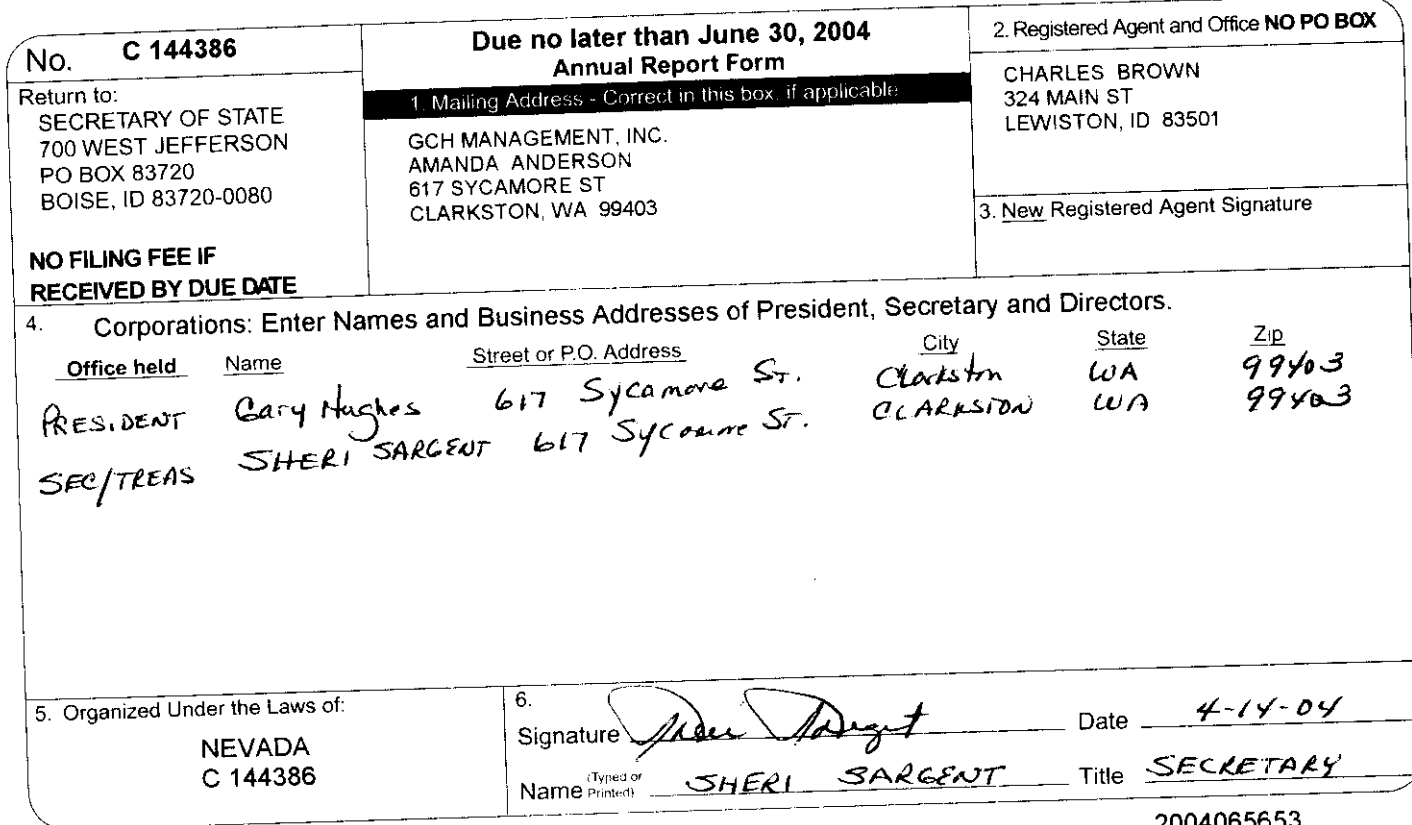 No. C 144386
Return to:
SECRETARY OF STATE
700 WEST JEFFERSON
PO BOX 83720
BOISE, ID 83720-0080
NO FILING FEE IF
RECEIVED BY DUE DATE
Due no later than June 30, 2004
Annual Report Form
1. Mailing Address - Correct in this box, if applicable
GCH MANAGEMENT, INC.
AMANDA ANDERSON
617 SYCAMORE ST
CLARKSTON, WA 99403
2. Registered Agent and Office NO PO BOX
CHARLES BROWN
324 MAIN ST
LEWISTON, ID 83501
3. New Registered Agent Signature
4. Corporations: Enter Names and Business Addresses of President, Secretary and Directors.
Office held Name Street or P.O. Address City State Zip
PRESIDENT Gary Hughes 617 Sycamore St. Clarkston WA 99403
SEC/TREAS SHERI SARGENT 617 Sycamore St. CLARKSTON WA 99403
5. Organized Under the Laws of:
NEVADA
C 144386
6.
Signature Sheri Sargent Date 4-14-04
Name (Typed or Printed) SHERI SARGENT Title SECRETARY
2004065653